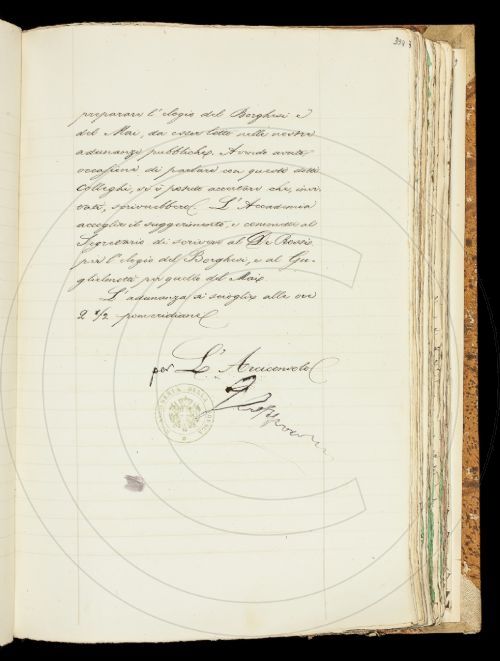 preparare l'elogio del Borghesi e
del Mai, da esser letto nelle nostre
adunanze pubbliche. Avendo avuta
occasione di parlare con questi detti
Colleghi, si è potuto accertare che, invi-
tati, scriverebbero. L'Accademia
accoglie il suggerimento, e commette al
Segretario di scrivere al De Rossi
per l'elogio del Borghesi, e al Gu-
glielmotti per quello del Mai.
L'adunanza si scioglie alle ore
2 1/2 pomeridiane.
per L'Arciconsolo